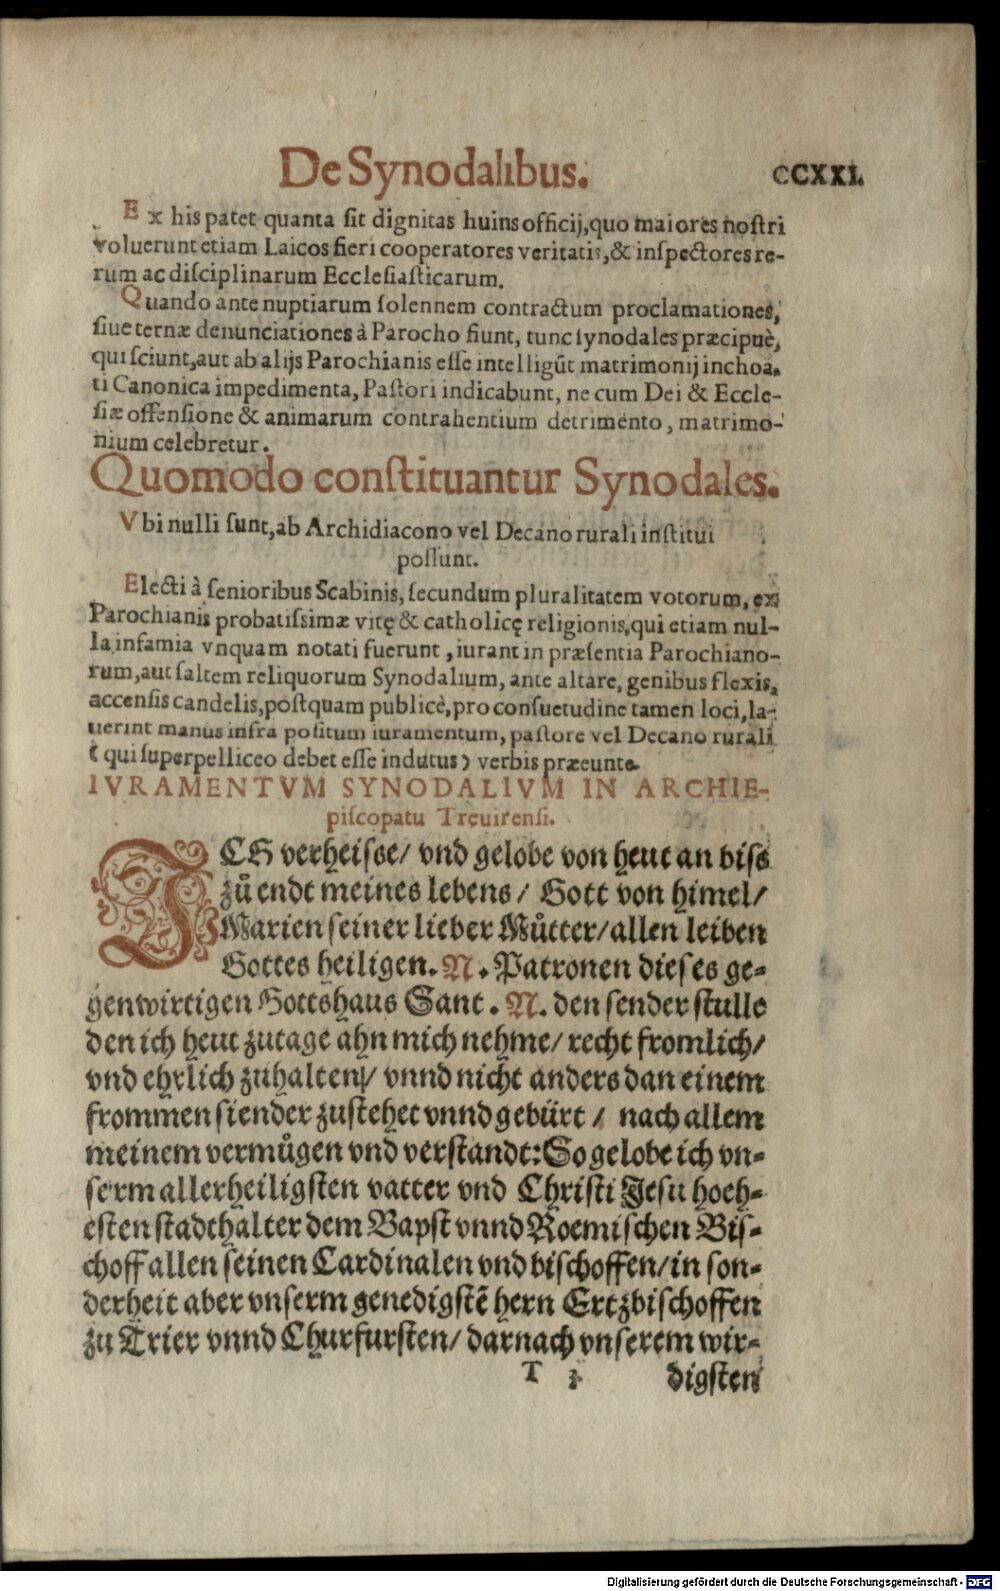 De Synodalibus. CCXXI.
Ex his patet quanta sit dignitas huius officij, quo maiores nostri
voluerunt etiam Laicos fieri cooperatores veritatis, & inspectores re-
rum ac disciplinarum Ecclesiasticarum.
Quando ante nuptiarum solennem contractum proclamationes,
siue ternæ denunciationes à Parocho fiunt, tunc synodales præcipuè,
qui sciunt, aut ab alijs Parochianis esse intelligūt matrimonij inchoa-
ti Canonica impedimenta, Pastori indicabunt, ne cum Dei & Eccle-
siæ offensione & animarum contrahentium detrimento, matrimo-
nium celebretur.
Quomodo constituantur Synodales.
Vbi nulli sunt, ab Archidiacono vel Decano rurali institui
possunt.
Electi à senioribus Scabinis, secundum pluralitatem votorum, ex
Parochianis probatissimæ vitę & catholicę religionis, qui etiam nul-
la infamia vnquam notati fuerunt, iurant in præsentia Parochiano-
rum, aut saltem reliquorum Synodalium, ante altare, genibus flexis,
accensis candelis, postquam publicè, pro consuetudine tamen loci, la-
uerint manus infra positum iuramentum, pastore vel Decano rurali
( qui superpelliceo debet esse indutus) verbis præeunte.
IVRAMENTVM SYNODALIVM IN ARCHIE-
piscopatu Treuirensi.
ICH verheisse/ vnd gelobe von heut an biss
zů endt meines lebens/ Gott von himel/
Marien seiner lieber Můtter/ allen leiben
Gottes heiligen. N. Patronen dieses ge-
genwirtigen Gottshaus Sant. N. den sender stulle
den ich heut zutage ahn mich nehme/ recht fromlich/
vnd ehrlich zuhalten/ vnnd nicht anders dan einem
frommen siender zustehet vnnd gebürt/ nach allem
meinem vermůgen vnd verstandt: So gelobe ich vn-
serm allerheiligsten vatter vnd Christi Jesu hoeh-
esten stadthalter dem Bapst vnnd Roemischen Bis-
choff allen seinen Cardinalen vnd bischoffen/ in son-
derheit aber vnserm genedigstē hern Ertzbischoffen
zu Trier vnnd Churfursten/ darnach vnserem wir-
T digsten
Digitalisierung gefördert durch die Deutsche Forschungsgemeinschaft - DFG